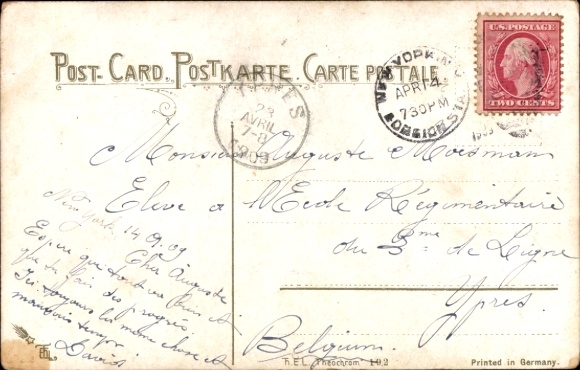 POST-CARD. POSTKARTE. CARTE POSTALE
U.S. POSTAGE
TWO CENTS
NEW YORK, N.Y.
APR 14
730 PM
FOREIGN STA.
YPRES
23
AVRIL
7-8
1909
Monsieur Auguste Moesman
Elève a l'Ecole Régimentaire
du 3me de Ligne
Ypres.
Belgium.
New York 14 09
Cher Auguste
Espere que tout va bien et
que tu fais des progrès.
Ici toujours la même chose et
mauvais temps
David
T.E.L. Theochrom 102
Printed in Germany.